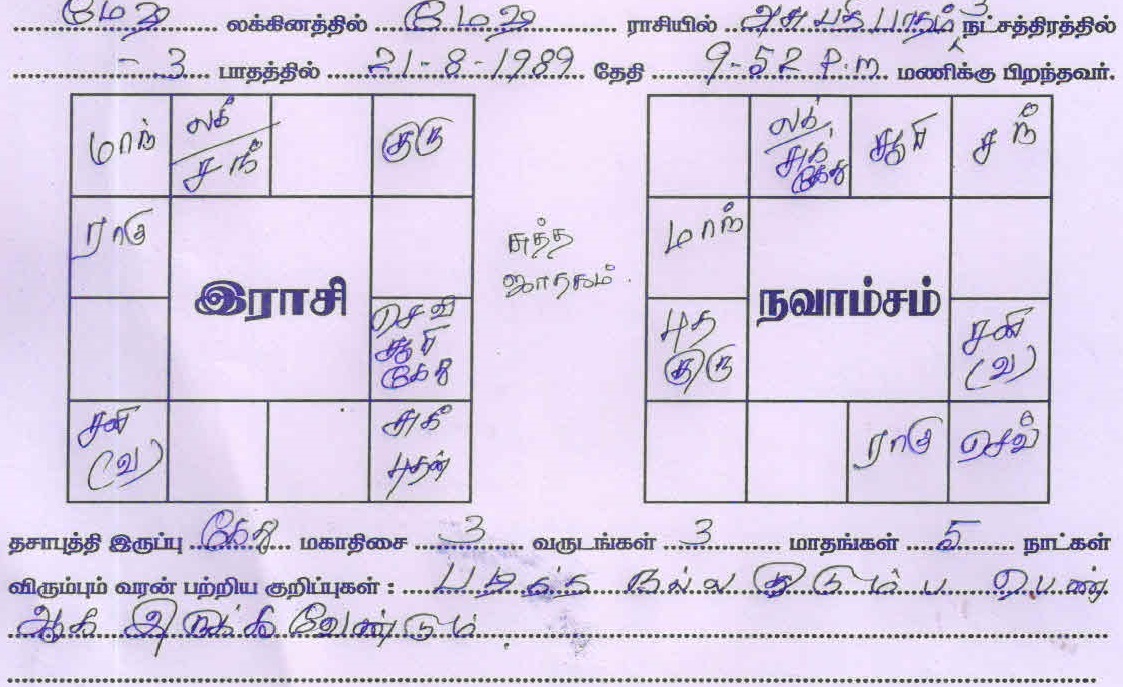 மேஷ லக்கினத்தில் மேஷ ராசியில் அசுபதி பாதம் 3 நட்சத்திரத்தில்
- 3 பாதத்தில் 21-8-1989 தேதி 9-52 P.m மணிக்கு பிறந்தவர்.
மாந்
லக்
சந்
குரு
ராகு
இராசி
செவ்
சூரி
கேது
சனி
(வ)
சுக்
புதன்
சுத்த
ஜாதகம்.
லக்
சுக்
கேது
சூரி
சந்
மாந்
நவாம்சம்
புத
குரு
சனி
(வ)
ராகு
செவ்
தசாபுத்தி இருப்பு கேது மகாதிசை 3 வருடங்கள் 3 மாதங்கள் 5 நாட்கள்
விரும்பும் வரன் பற்றிய குறிப்புகள் : படித்த நல்ல குடும்ப பெண்
ஆக இருக்க வேண்டும்.